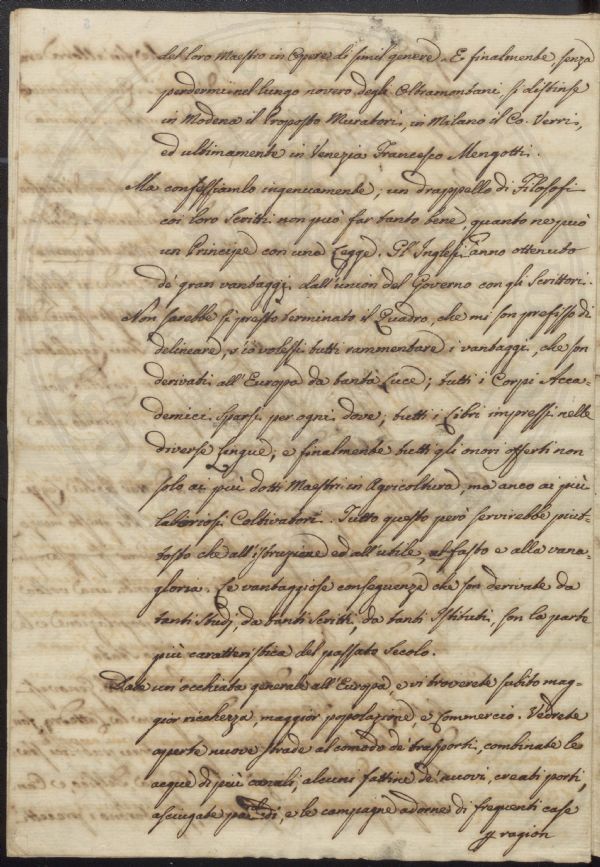 del loro Maestro in Opere di simil genere. E finalmente, senza
perdermi nel lungo novero degli Oltramontani, si distinse
in Modena il Proposto Muratori, in Milano il Co. Verri,
ed ultimamente in Venezia Francesco Mengotti.
Ma confessiamlo ingenuamente; un drappello di Filosofi
coi loro Scritti non può far tanto bene, quanto ne può
un Principe con una Legge. Gl'Inglesi ànno ottenuto
de' gran vantaggi dall'union del Governo con gli Scrittori.
Non sarebbe sì presto terminato il Quadro, che mi son prefisso di
delineare, s'io volessi tutti rammentare i vantaggi, che son
derivati all'Europa da tanta Luce; tutti i Corpi Acca-
demici sparsi per ogni dove; tutti i Libri impressi nelle
diverse Lingue; e finalmente tutti gli onori offerti non
solo ai più dotti Maestri in Agricoltura, ma anco ai più
laboriosi Coltivatori. Tutto questo però servirebbe piut-
tosto che all'istruzione ed all'utile, al fasto e alla vana-
gloria. Le vantaggiose conseguenze che son derivate da
tanti Studj, da tanti Scritti, da tanti Istituti, son la parte
più caratteristica del passato Secolo.
Date un'occhiata generale all'Europa, e vi troverete subito mag-
gior ricchezza, maggior popolazione e Commercio. Vedrete
aperte nuove strade al comodo de' trasporti, combinate le
acque di più canali, alcuni fattine de' nuovi, creati porti,
asciugate paludi, e le campagne adorne di frequenti case
ragion